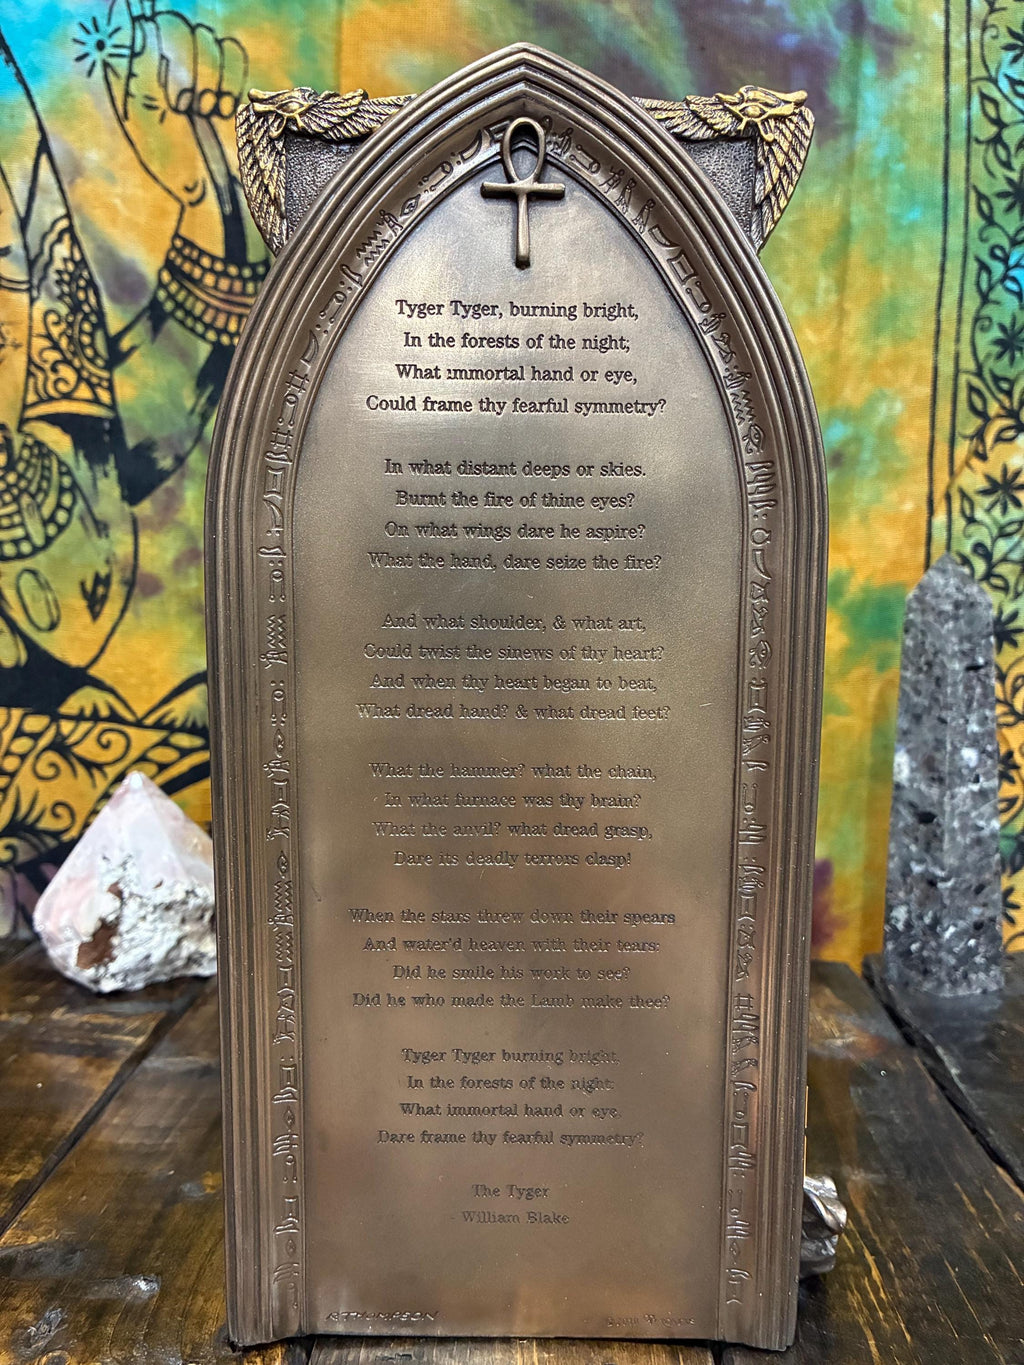 Tyger Tyger, burning bright,
In the forests of the night;
What immortal hand or eye,
Could frame thy fearful symmetry?
In what distant deeps or skies.
Burnt the fire of thine eyes?
On what wings dare he aspire?
What the hand, dare seize the fire?
And what shoulder, & what art,
Could twist the sinews of thy heart?
And when thy heart began to beat,
What dread hand? & what dread feet?
What the hammer? what the chain,
In what furnace was thy brain?
What the anvil? what dread grasp,
Dare its deadly terrors clasp!
When the stars threw down their spears
And water'd heaven with their tears:
Did he smile his work to see?
Did he who made the Lamb make thee?
Tyger Tyger burning bright,
In the forests of the night:
What immortal hand or eye,
Dare frame thy fearful symmetry?
The Tyger
- William Blake
R.THOMPSON